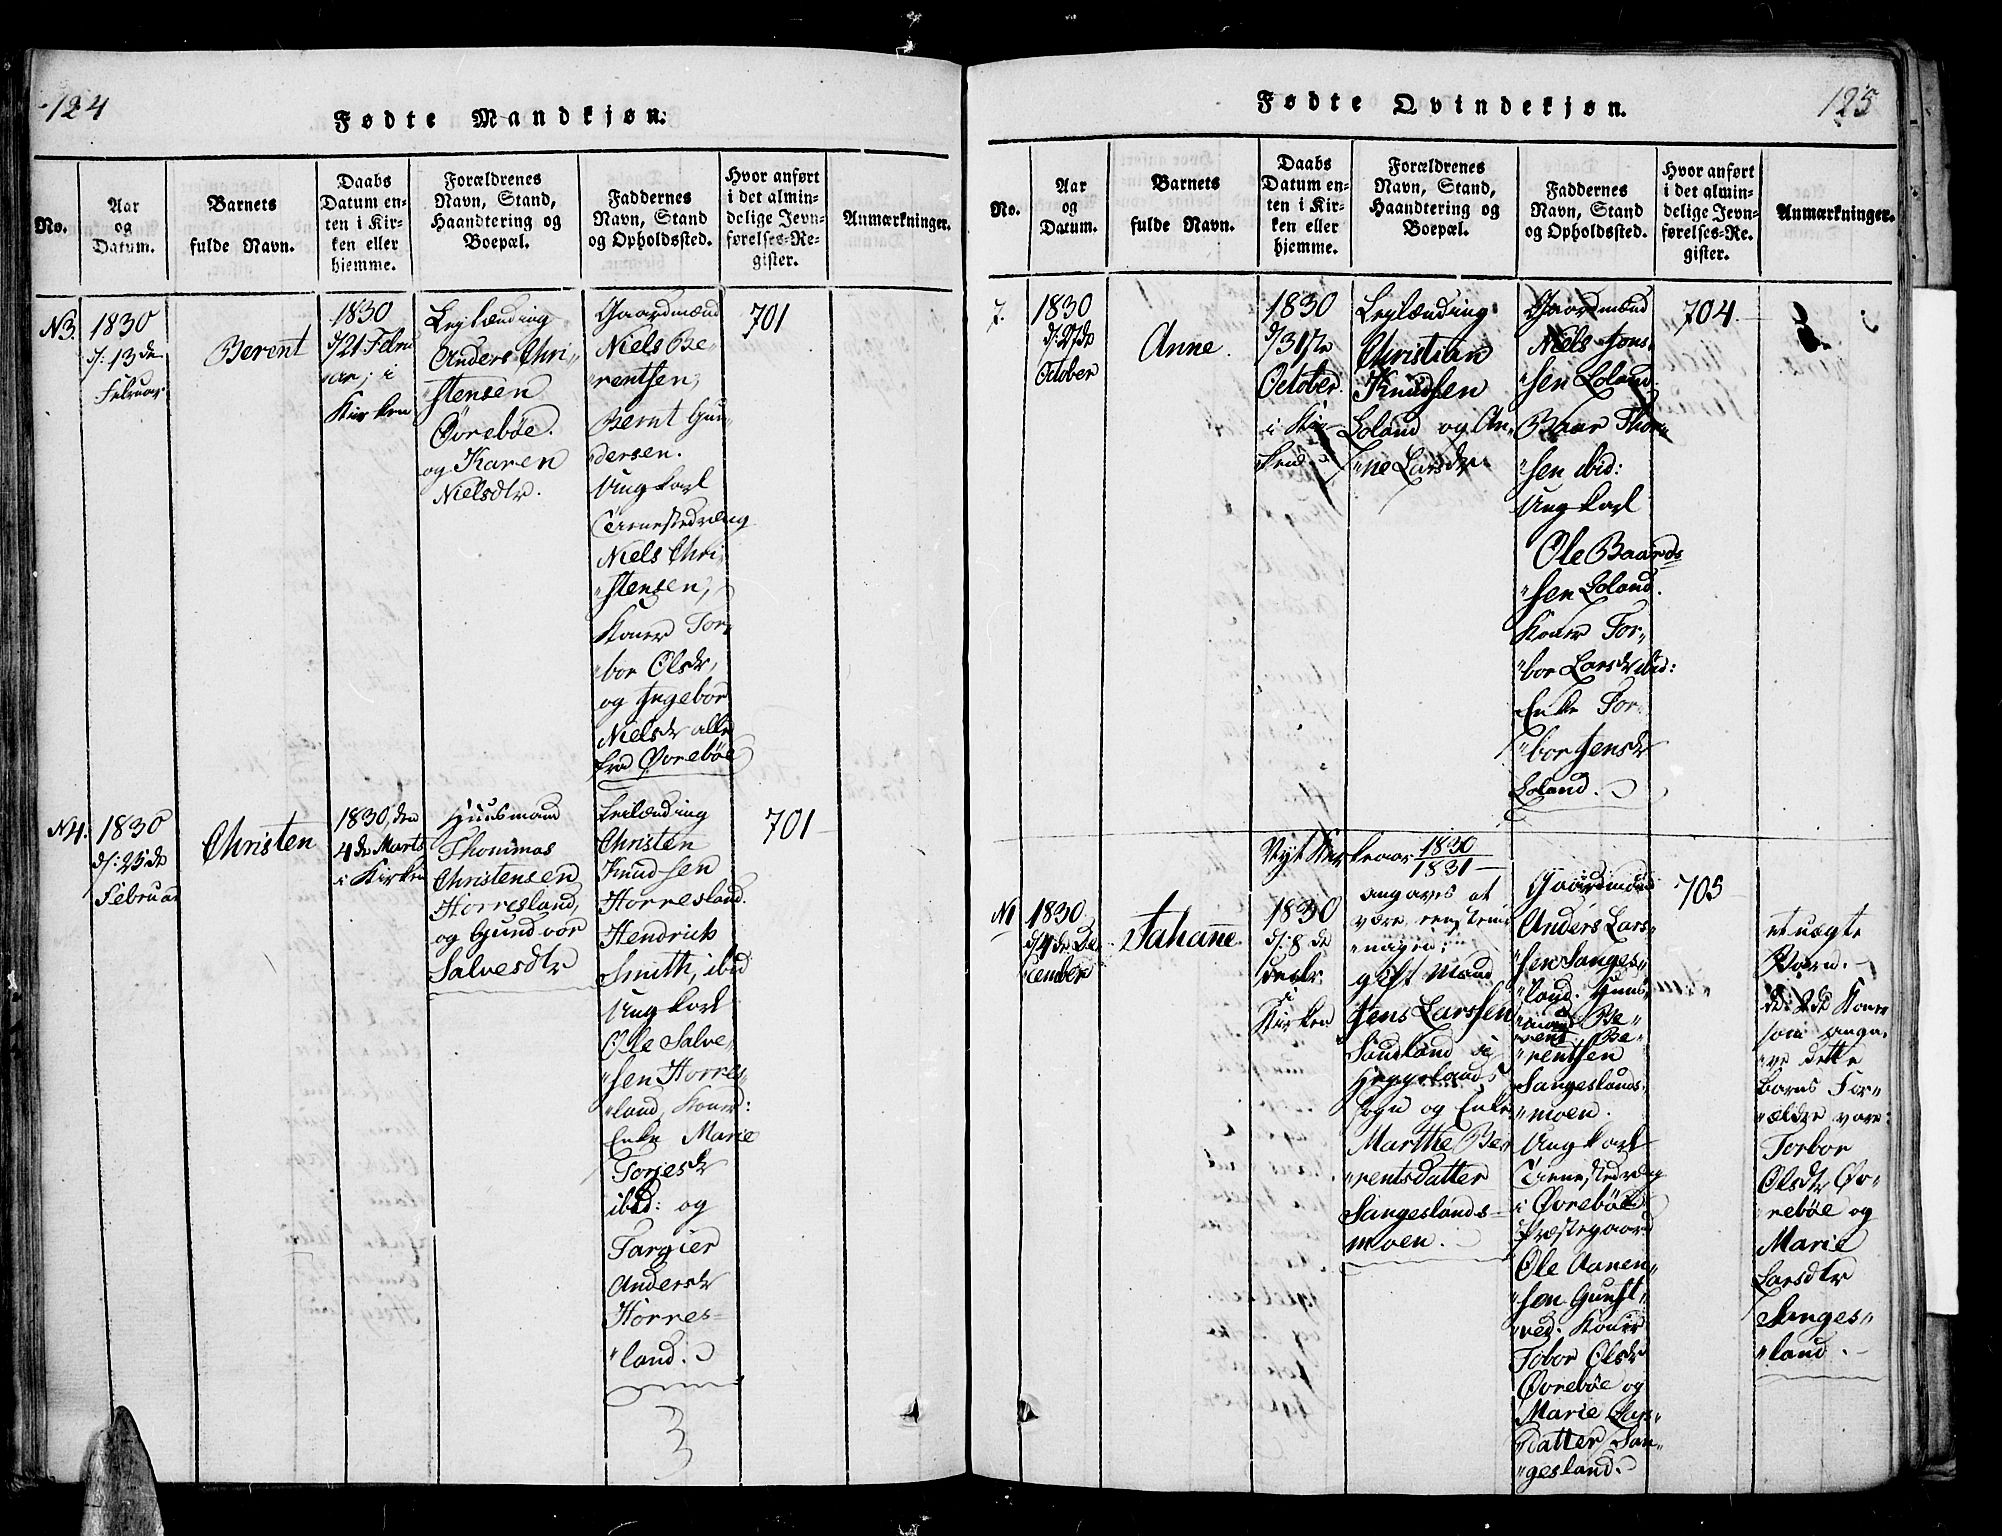 124
Fødte Mandkjøn.
No.
Aar
og
Datum.
Barnets
fulde Navn.
Daabs
Datum en-
ten i Kir-
ken eller
hjemme.
Forældrenes
Navn, Stand,
Haandtering og
Boepæl.
Faddernes
Navn, Stand
og Opholdssted.
Hvor anført
i det almin-
delige Jevn-
førelses-Re-
gister.
Anmærkninger.
N3.
1830
d: 13de
Februar
Berent
1830
d/21 Febru
"ar; i
Kirken
Leylænding
Anders Chri-
"stensen
Øvrebøe.
og Karen
Nielsdtr.
Gaardmænd
Niels Be-
rentsen,
Bernt Gun-
"dersen.
Ungkarl
Tienestedræng
Niels Chri-
"stensen,
Koner Tor-
"bor Olsdr,
og Ingebor
Nielsdr alle
fra Øvrebøe
701
N4.
1830
d: 25de
Februar
Christen
1830, den
4de Marts
i Kirken
Huusmand
Thommas
Christensen
Horresland,
og Gundvor
Salvesdtr
Leilænding
Christen
Knudsen
Horresland.
Hendrich
Smith, ibid
Ungkarl
Ole Salve-
"sen Horres-
"land, Koner:
Enke Marie
Torjesdr
ibid: og
Targier
Andersdr
Horres-
"land.
701
3
125
Fødte Qvindekjøn.
No.
Aar
og
Datum.
Barnets
fulde Navn.
Daabs
Datum en-
ten i Kir-
ken eller
hjemme.
Forældrenes
Navn, Stand,
Haandtering og
Boepæl.
Faddernes
Navn, Stand
og Opholdssted.
Hvor anført
i det almin-
delige Jevn-
førelses-Re-
gister.
Anmærkninger.
7.
1830
d: 27de
October
Anne.
1830
d/31te
October
i Kir-
"ken
Leylænding
Christian
Knudsen
Loland og An-
"ne Larsdr.
Gaardmænd
Niels Jons-
"sen Loland.
Baar Thor-
"sen ibid:
Ungkarl
Ole Baards
"sen Loland.
Koner Tor-
"bor Larsdr ibid:
Enke Tor-
"bor Jensdr
Loland.
704
Nyt Kirkeaar 1830
1831
N1
1830
d/4de De-
"cember
Jahanne
1830
d: 8de
Decbr.
i
Kirken
angaves at
være
gift Mand
Jens Larssen
Sausland i
Heggelands
Sogn og Enke
Marthe Be-
"rentsdatter
Sangeslands-
moen.
Gaardmænd
Anders Lars-
"sen Sanges-
"land. Huus-
"mand Be-
"rent Be-
"rentsen
Sangeslands-
"moen.
Ungkarl
Tienestedræng
i Øvrebøe
Præstegaard
Ole Aanen-
"sen
Koner
Tobor Olsdr
Øvrebøe og
Marie Lars-
"datter San-
"gesland.
705
et uægte
Barn.
de 2de Koner
som anga-
"ve dette
barns For-
"ældre vare:
Torbor
Olsdtr Øv-
"rebøe og
Marie
Larsdtr
Sanges-
"land.